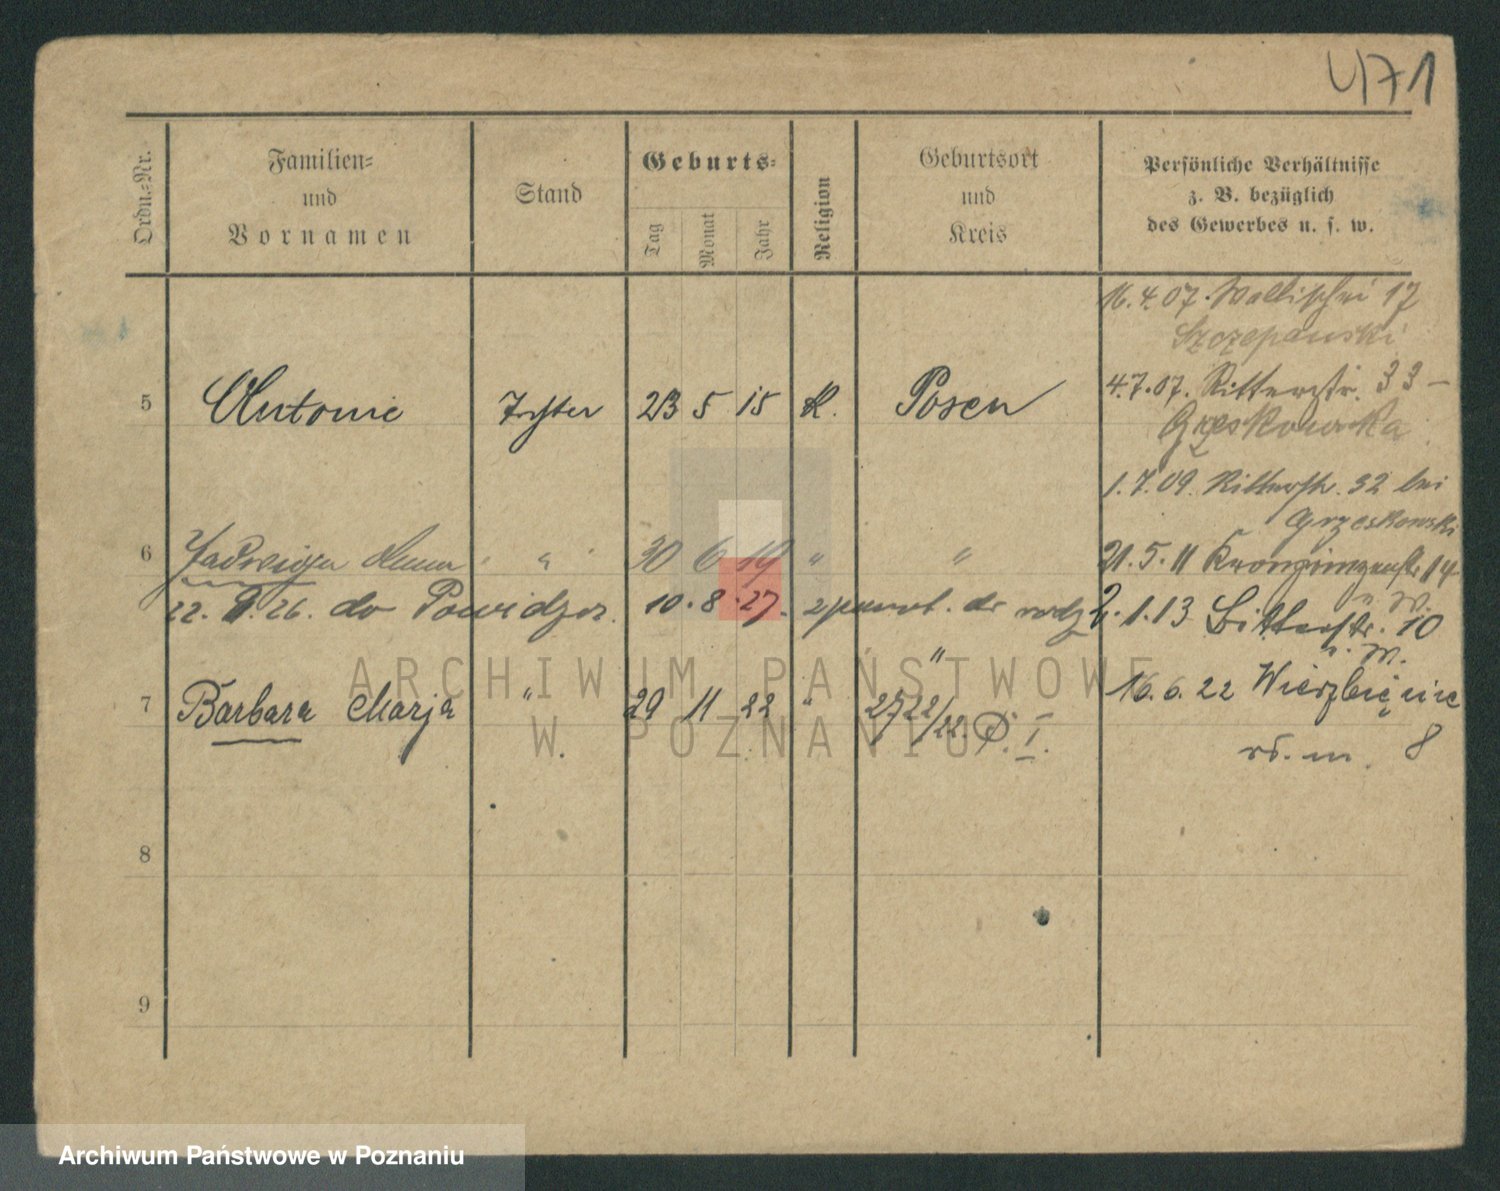 471
Ordn.=Nr.
Familien=
und
Vornamen
Stand
Geburts=
Tag
Monat
Jahr
Religion
Geburtsort
und
Kreis
Persönliche Verhältnisse
z. B. bezüglich
des Gewerbes u. s. w.
16.4.07. Wallischei 17
Szczepanski
5 Antonie Tochter 23 5 15 K. Posen
4.7.07. Ritterstr. 33 –
Grzeskowska
1.7.09. Ritterstr. 32 bei
Grzeskowski
6 Jadwiga " 30 6 19 " "
21.5.11 Kronprinzenstr. 14
22. 9. 26. do Powidza. 10.8.27. do
2.1.13 Bitterstr. 10
7 Barbara Marja " 29 11 22 " "
2522/22. I.
16.6.22 Wierzbięcice
8
8
9
ARCHIWUM PAŃSTWOWE
W POZNANIU
Archiwum Państwowe w Poznaniu